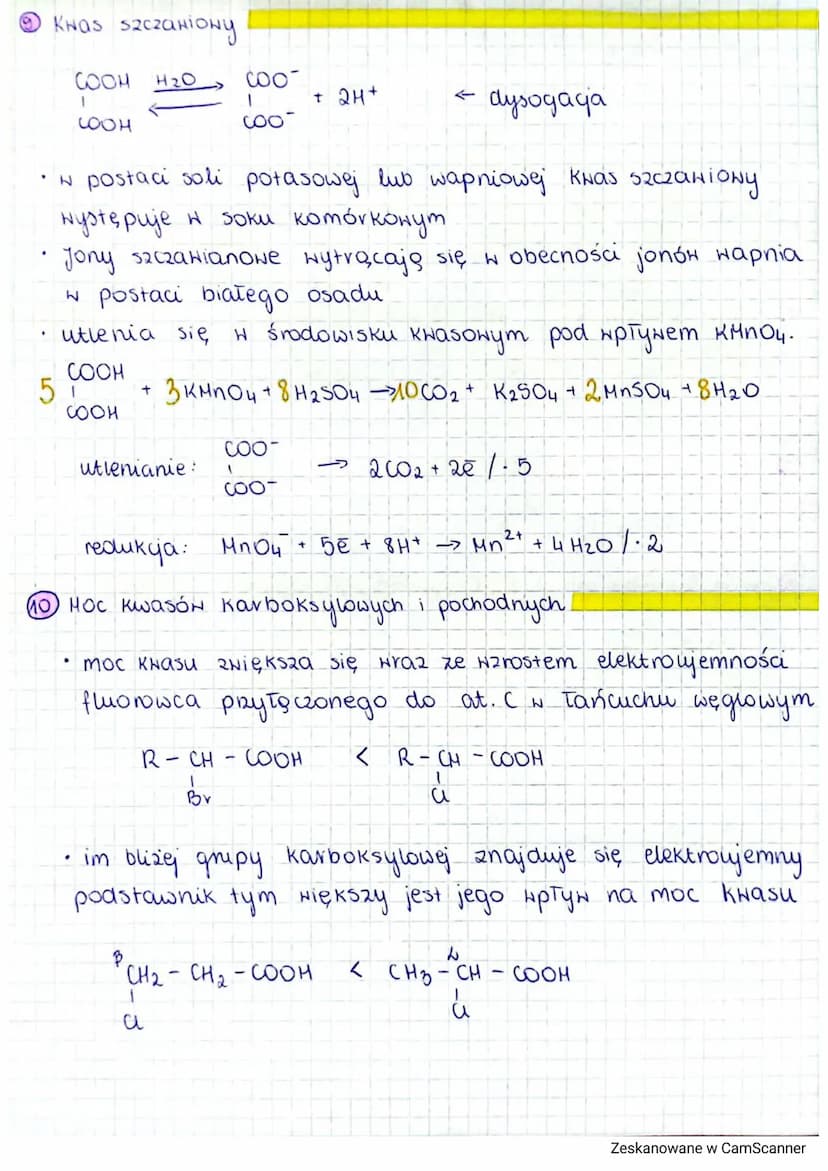 9 Kwas szczawiony
COOH H2O COO⁻
| ⇄ | + 2H⁺ ← dysogacja
COOH COO⁻
• w postaci soli potasowej lub wapniowej kwas szczawiony
występuje w soku komórkowym
• Jony szczawianowe wytrącają się w obecności jonów wapnia
w postaci białego osadu
• utlenia się w środowisku kwasowym pod wpływem KMnO4.
COOH
5 | + 3KMnO4 + 8H2SO4 → 10CO2 + K2SO4 + 2MnSO4 + 8H2O
COOH
COO⁻
utlenianie: | → 2CO2 + 2ē /· 5
COO⁻
redukcja: MnO4⁻ + 5ē + 8H⁺ → Mn²⁺ + 4H2O /· 2
10 Moc kwasów karboksylowych i pochodnych
• moc kwasu zwiększa się wraz ze wzrostem elektroujemności
fluorowca przyłączonego do at. C w łańcuchu węglowym
R – CH – COOH < R – CH – COOH
| |
Br Cl
• im bliżej grupy karboksylowej znajduje się elektroujemny
podstawnik tym większy jest jego wpływ na moc kwasu
β α
CH2 – CH2 – COOH < CH3 – CH – COOH
| |
Cl Cl
Zeskanowane w CamScanner